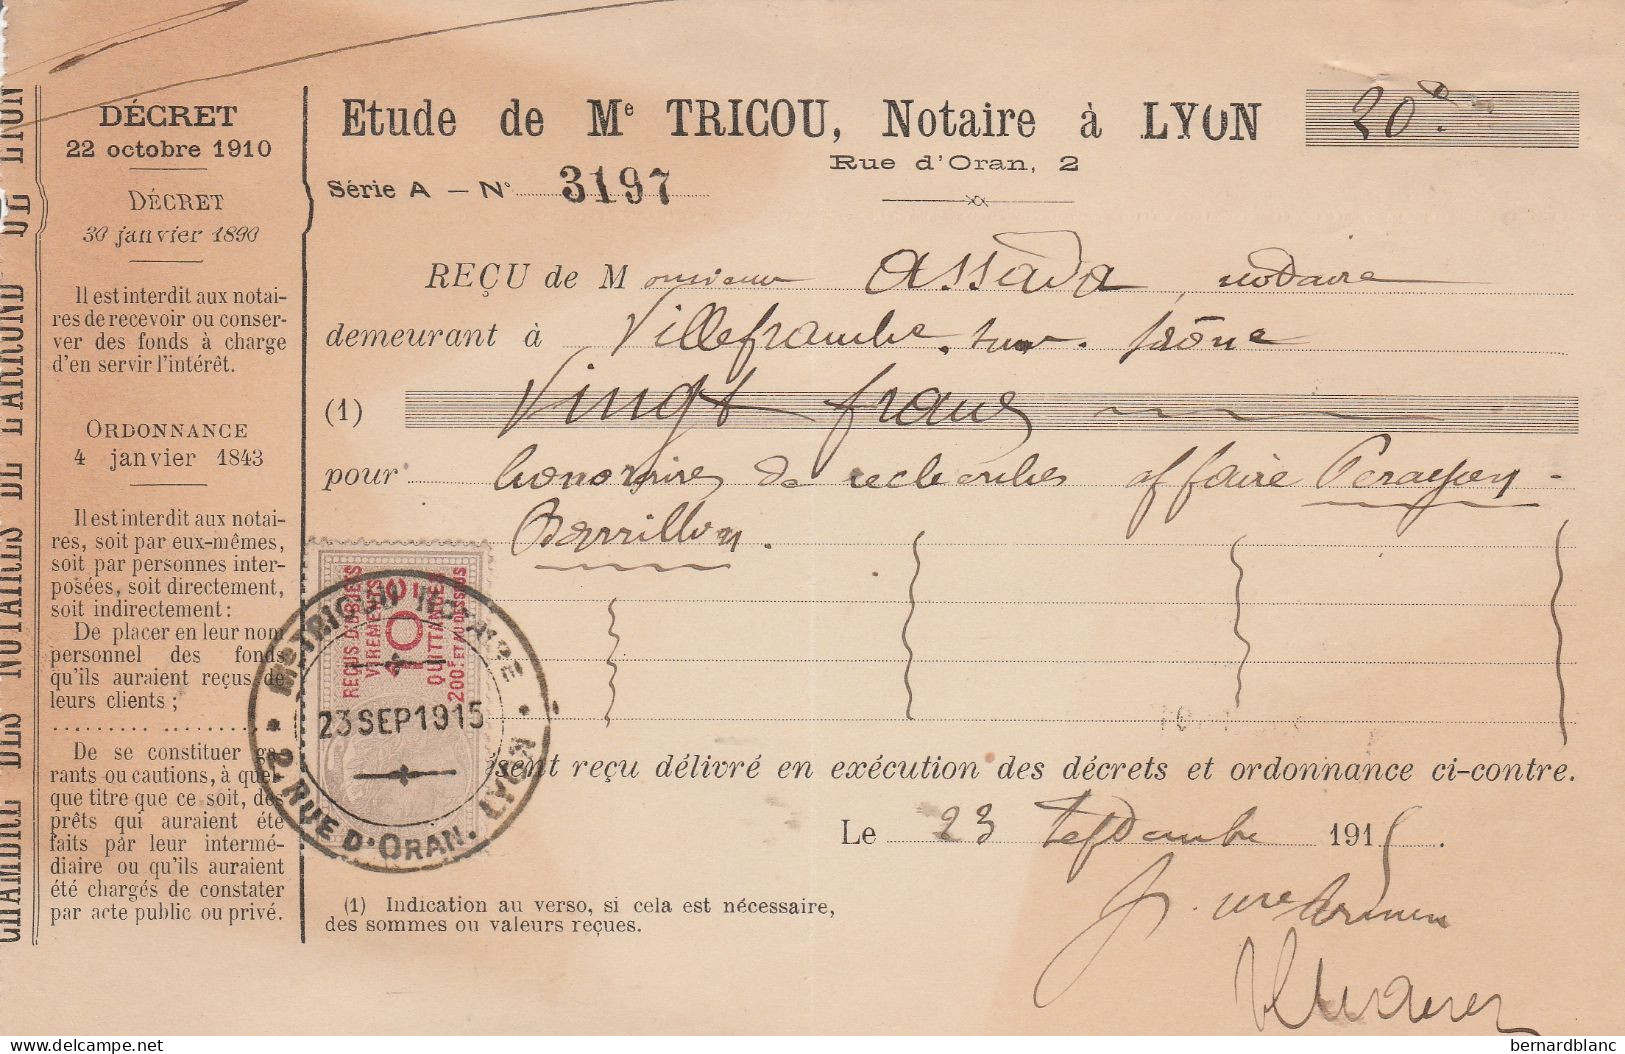 CHAMBRE DES NOTAIRES DE L'ARROND^t DE LYON
DÉCRET
22 octobre 1910
DÉCRET
30 janvier 1890
Il est interdit aux notai-
res de recevoir ou conser-
ver des fonds à charge
d'en servir l'intérêt.
ORDONNANCE
4 janvier 1843
Il est interdit aux notai-
res, soit par eux-mêmes,
soit par personnes inter-
posées, soit directement,
soit indirectement :
De placer en leur nom
personnel des fonds
qu'ils auraient reçus de
leurs clients ;
De se constituer ga-
rants ou cautions, à quel-
que titre que ce soit, des
prêts qui auraient été
faits par leur intermé-
diaire ou qu'ils auraient
été chargés de constater
par acte public ou privé.
Etude de Me TRICOU, Notaire à LYON
20
Rue d'Oran, 2
Série A - N° 3197
REÇU de Monsieur Assada, notaire
demeurant à Villefranche-sur-Saône
(1) Vingt francs
pour honoraires de recherches affaire
Barrillon.
REÇUS D'OBJETS
VIREMENTS
10c
QUITTANCES
200F ET AU DESSUS
Me TRICOU NOTAIRE
23 SEP 1915
2, RUE D'ORAN. LYON
ésent reçu délivré en exécution des décrets et ordonnance ci-contre.
Le 23 Septembre 1915.
(1) Indication au verso, si cela est nécessaire,
des sommes ou valeurs reçues.
delcampe.net
bernardblanc